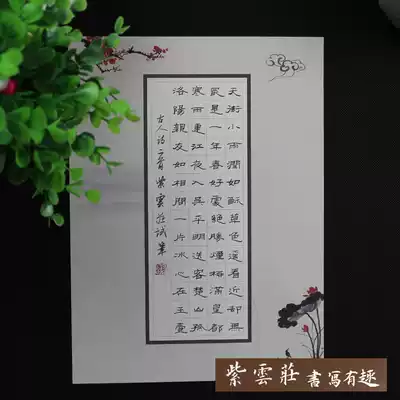 天街小雨潤如酥草色遥看近却無
最是一年春好處絕勝煙柳滿皇都
寒雨連江夜入吳平明送客楚山孤
洛陽親友如相問一片冰心在玉壺
古人詩二首 紫雲莊試筆
紫雲莊 書寫有趣